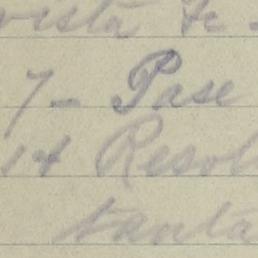 vista Fe
7- Pase
14 Resol
tanta